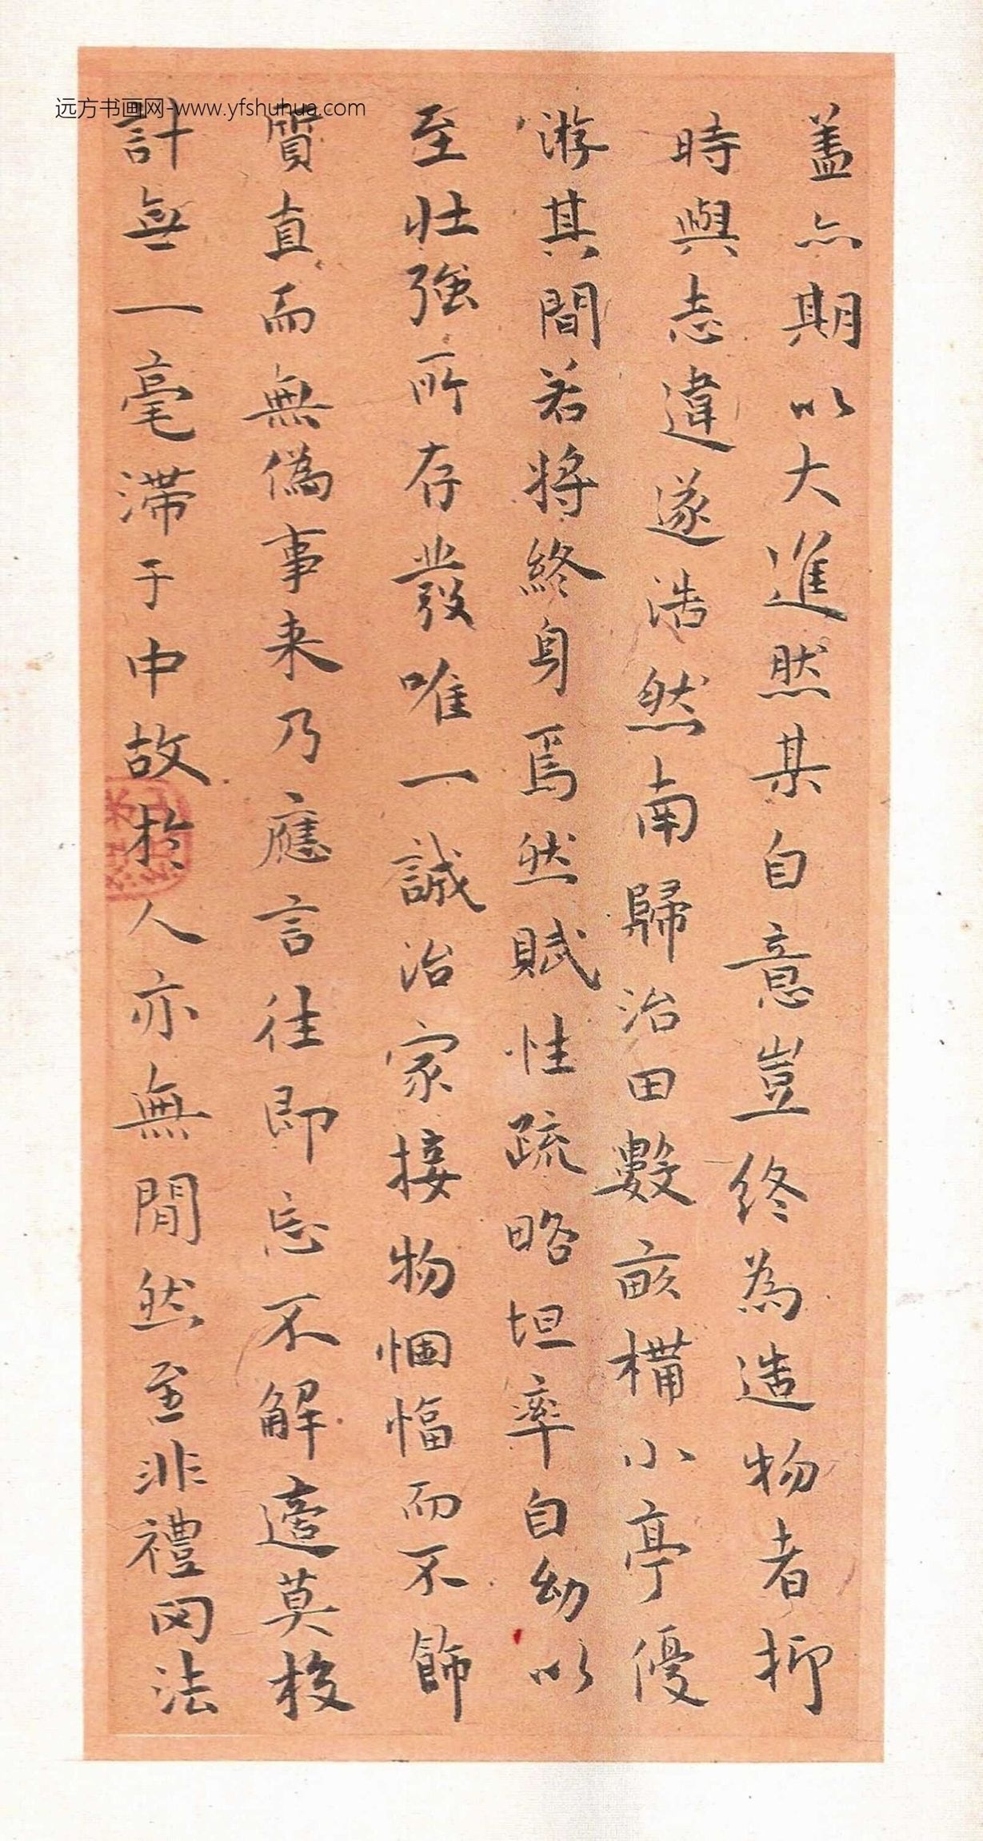 远方书画网-www.yfshuhua.com
盖亦期以大進然某自意豈終為造物者抑
時與志違遂浩然南歸治田數畝構小亭優
游其間若將終身焉然賦性疏略坦率自幼以
至壯強所存發唯一誠治家接物悃愊而不飾
質直而無偽事来乃應言往即忘不解適莫梭
計無一毫滞于中故於人亦無間然至非禮罔法